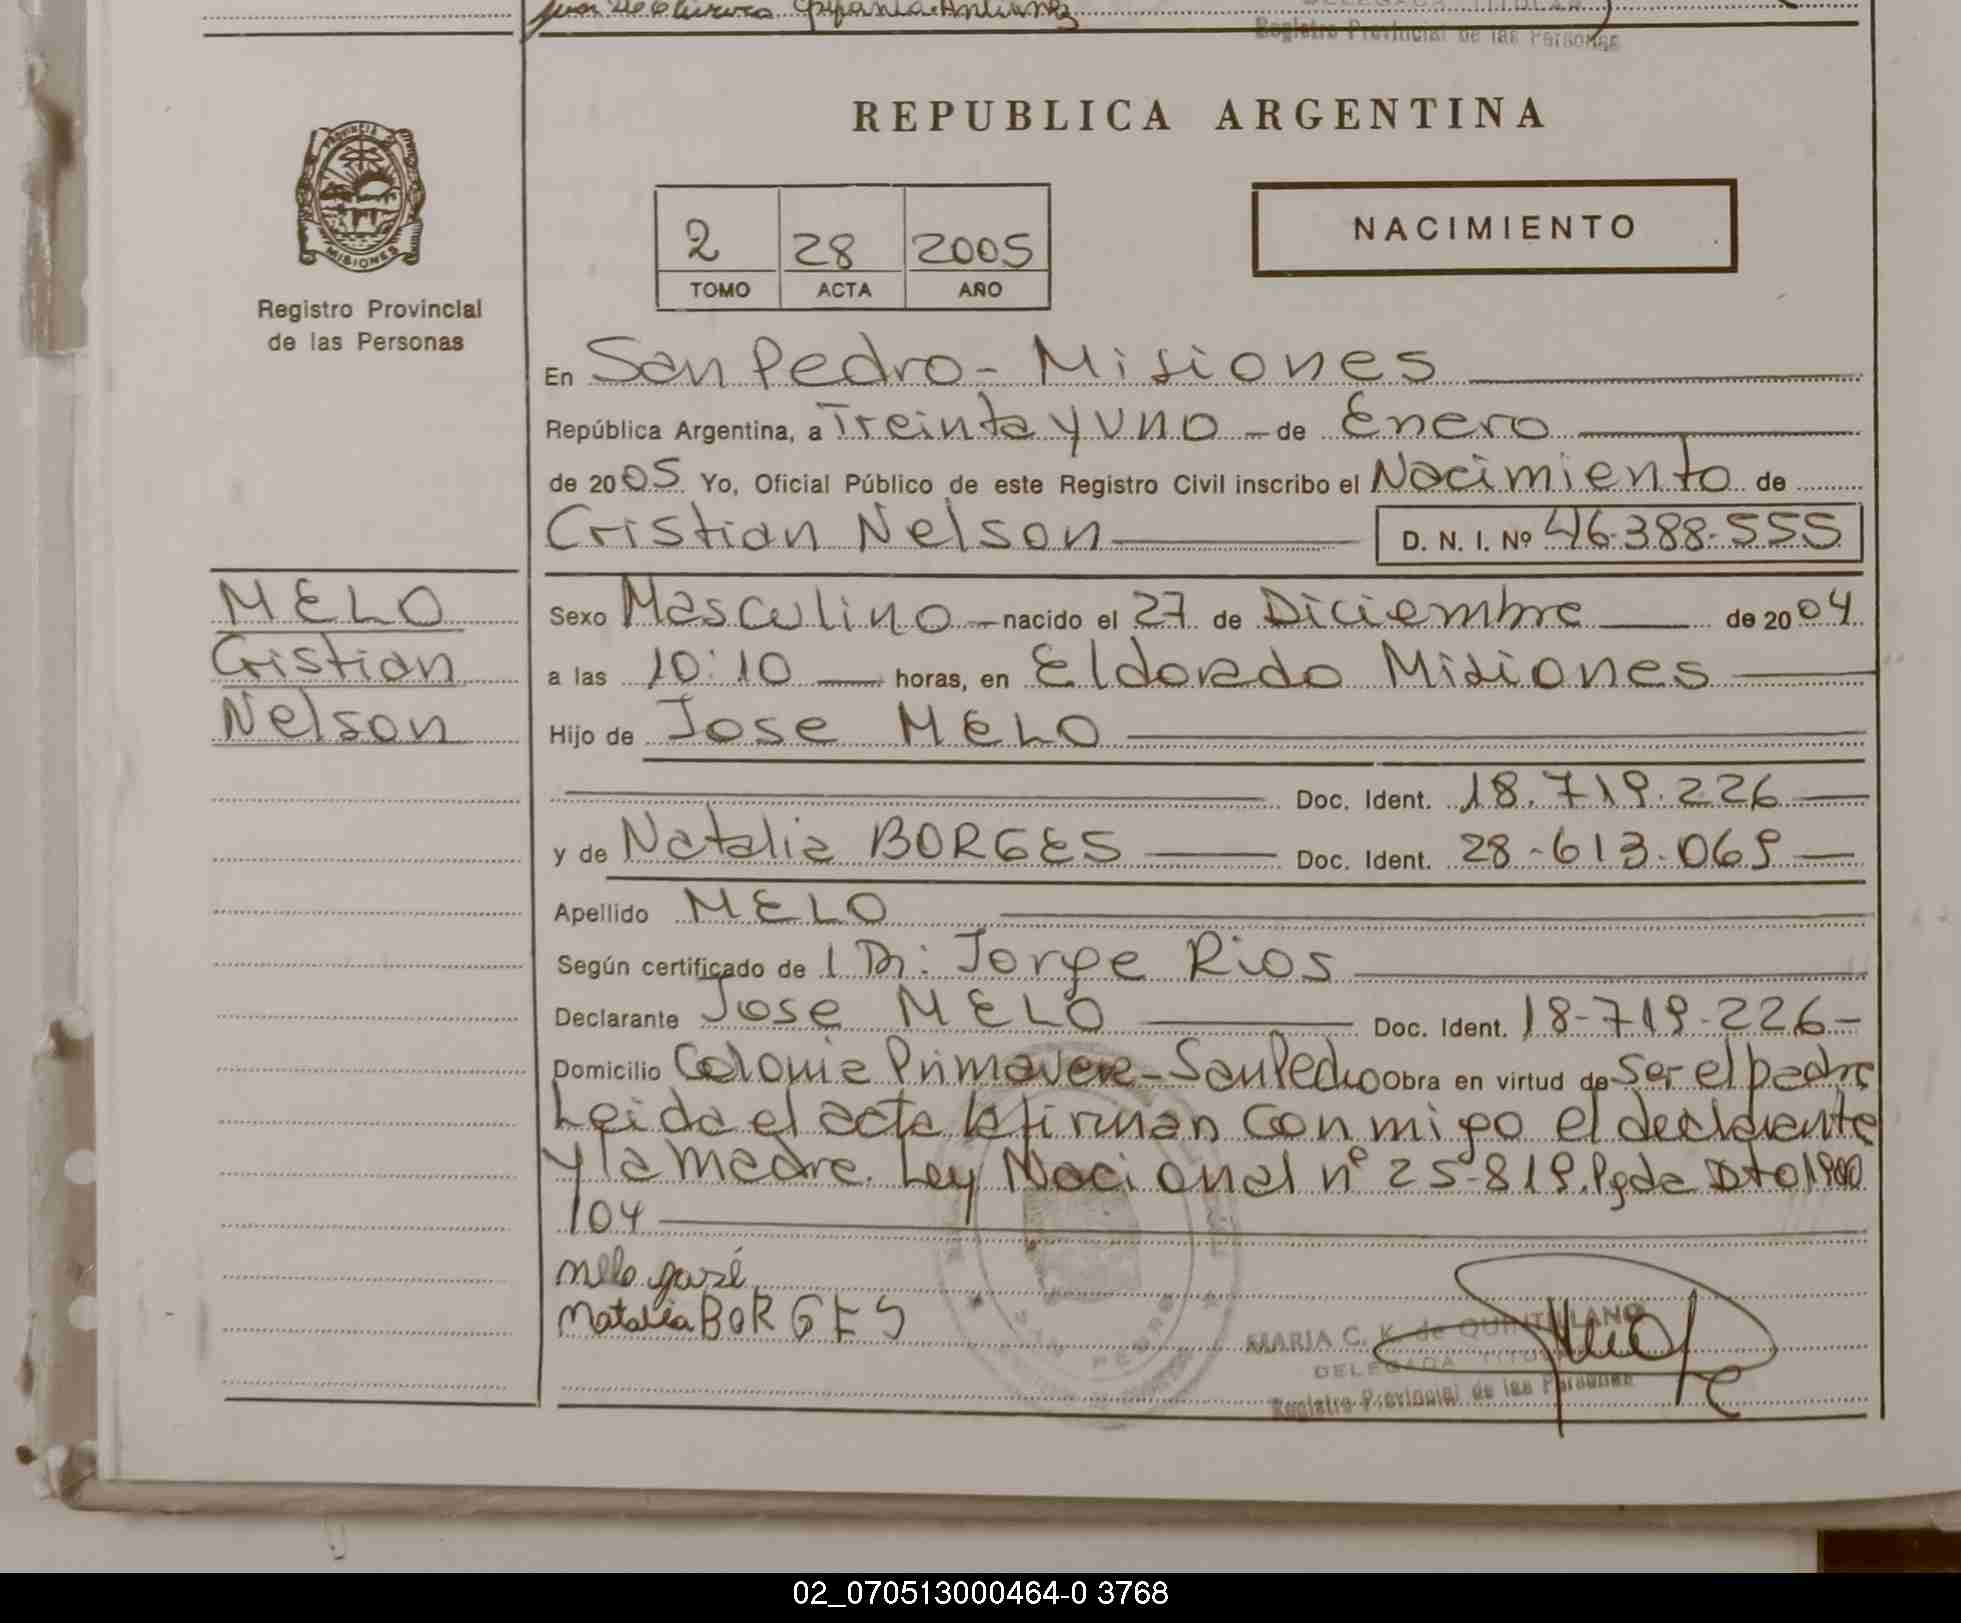 Registro Provincial de las Personas
REPUBLICA ARGENTINA
PROVINCIA DE
MISIONES
Registro Provincial
de las Personas
2 28 2005
TOMO ACTA AÑO
NACIMIENTO
En San Pedro - Misiones
República Argentina, a Treinta y uno de Enero
de 2005 Yo, Oficial Público de este Registro Civil inscribo el Nacimiento de
Cristian Nelson D. N. I. Nº 46.388.555
MELO
Cristian
Nelson
Sexo Masculino nacido el 27 de Diciembre de 2004
a las 10:10 horas, en Eldorado Misiones
Hijo de Jose MELO
Doc. Ident. 18.719.226
y de Natalia BORGES Doc. Ident. 28-613.069
Apellido MELO
Según certificado de 1 Dr: Jorge Rios
Declarante Jose MELO Doc. Ident. 18-719.226-
Domicilio Colonia Primavera - San Pedro Obra en virtud de ser el padre
Leida el acta la firman conmigo el declarante
y la madre. Ley Nacional nº 25-819. Pgda Dto 1900
/04
melo josé
Natalia BORGES
MARIA C. K. de QUINTILLANO
DELEGADA TITULAR
Registro Provincial de las Personas
02_070513000464-0 3768